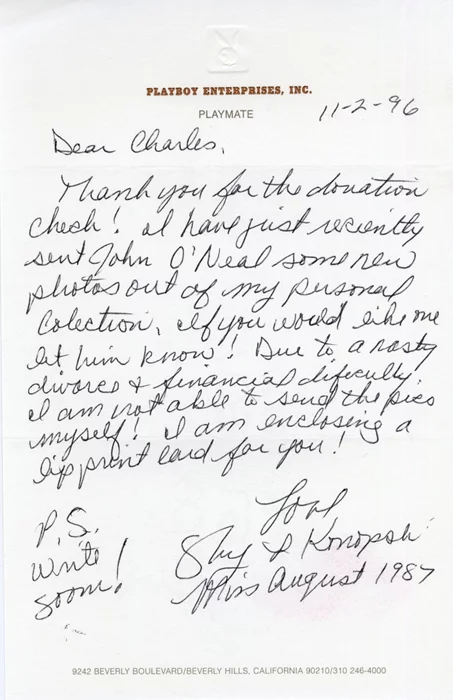 PLAYBOY ENTERPRISES, INC.
PLAYMATE
11-2-96
Dear Charles,
Thank you for the donation
check! I have just recently
sent John O'Neal some new
photos out of my personal
Colection, If you would like me
let him know! Due to a nasty
divorce & financial dificulty
I am not able to send the pics
myself! I am enclosing a
lip print card for you!
Love
Sky & Konopski
Miss August 1987
P.S.
write
soon!
9242 BEVERLY BOULEVARD/BEVERLY HILLS, CALIFORNIA 90210/310 246-4000